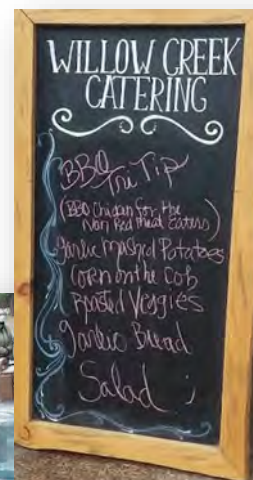 WILLOW CREEK
CATERING
BBQ
Tri Tip
(BBQ Chicken for the
Non Red Meat Eaters)
Garlic Mashed Potatoes
Corn on the Cob
Roasted Veggies
Garlic Bread
Salad